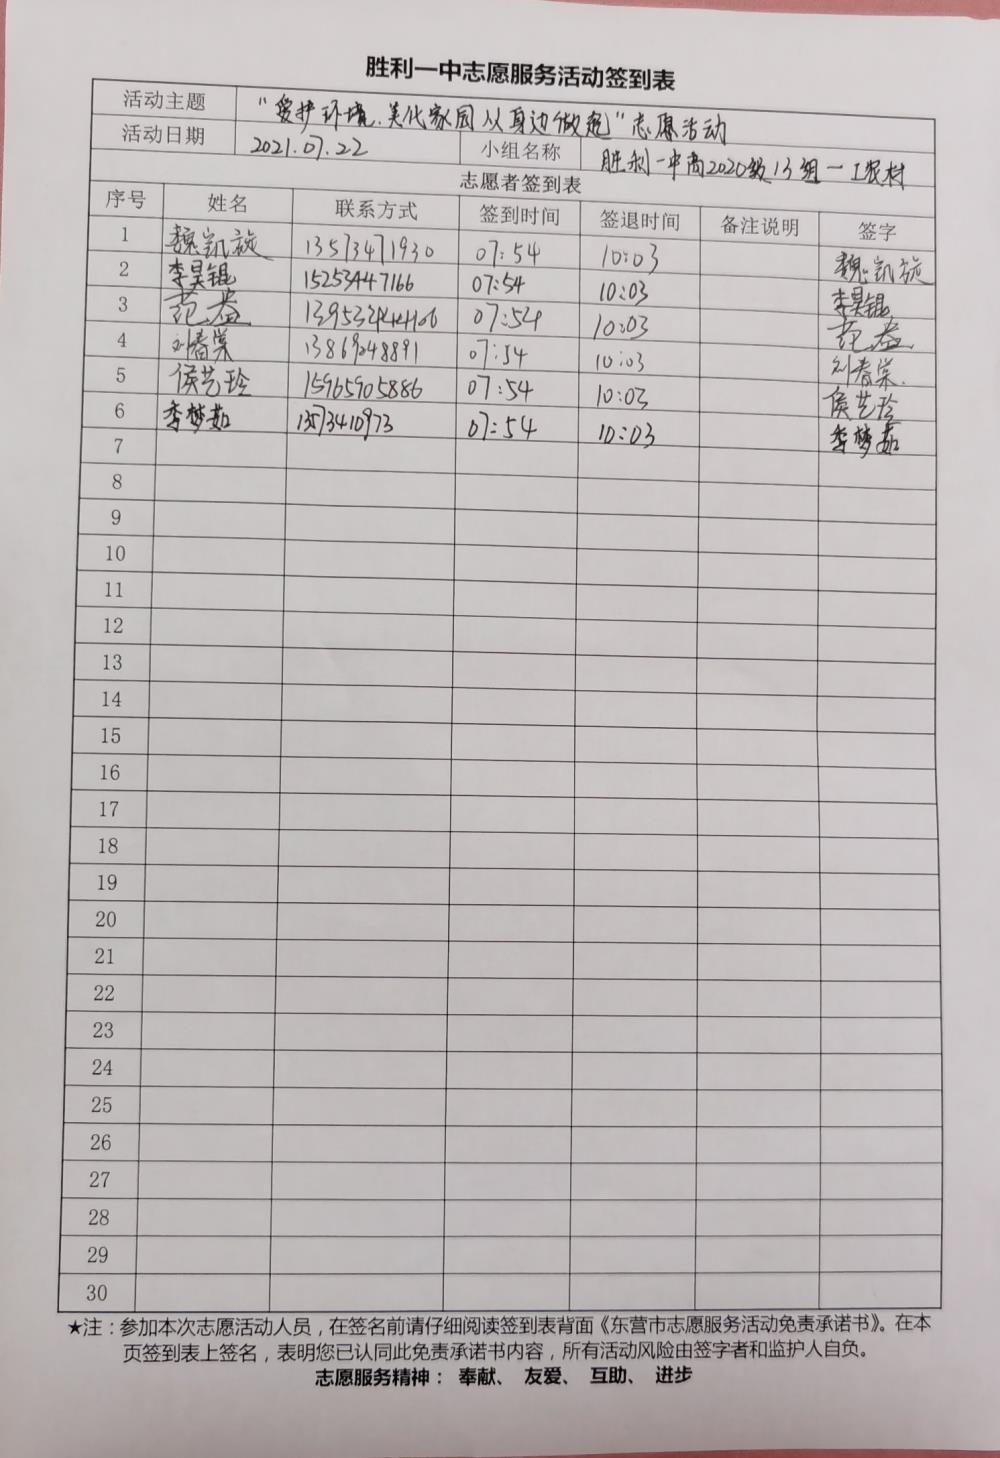 胜利一中志愿服务活动签到表
活动主题 "爱护环境.美化家园从身边做起"志愿活动
活动日期 2021.07.22 小组名称 胜利一中高2020级13组一工农村
志愿者签到表
序号 姓名 联系方式 签到时间 签退时间 备注说明 签字
1 魏凯旋 13573471930 07:54 10:03 魏凯旋
2 李昊锟 15253447166 07:54 10:03 李昊锟
3 范益 07:54 10:03 范益
4 刘春棠 13869248891 07:54 10:03 刘春棠.
5 侯艺玲 15965905886 07:54 10:03 侯艺玲
6 季梦茹 13573410973 07:54 10:03 季梦茹
7
8
9
10
11
12
13
14
15
16
17
18
19
20
21
22
23
24
25
26
27
28
29
30
★注：参加本次志愿活动人员，在签名前请仔细阅读签到表背面《东营市志愿服务活动免责承诺书》。在本
页签到表上签名，表明您已认同此免责承诺书内容，所有活动风险由签字者和监护人自负。
志愿服务精神： 奉献、 友爱、 互助、 进步